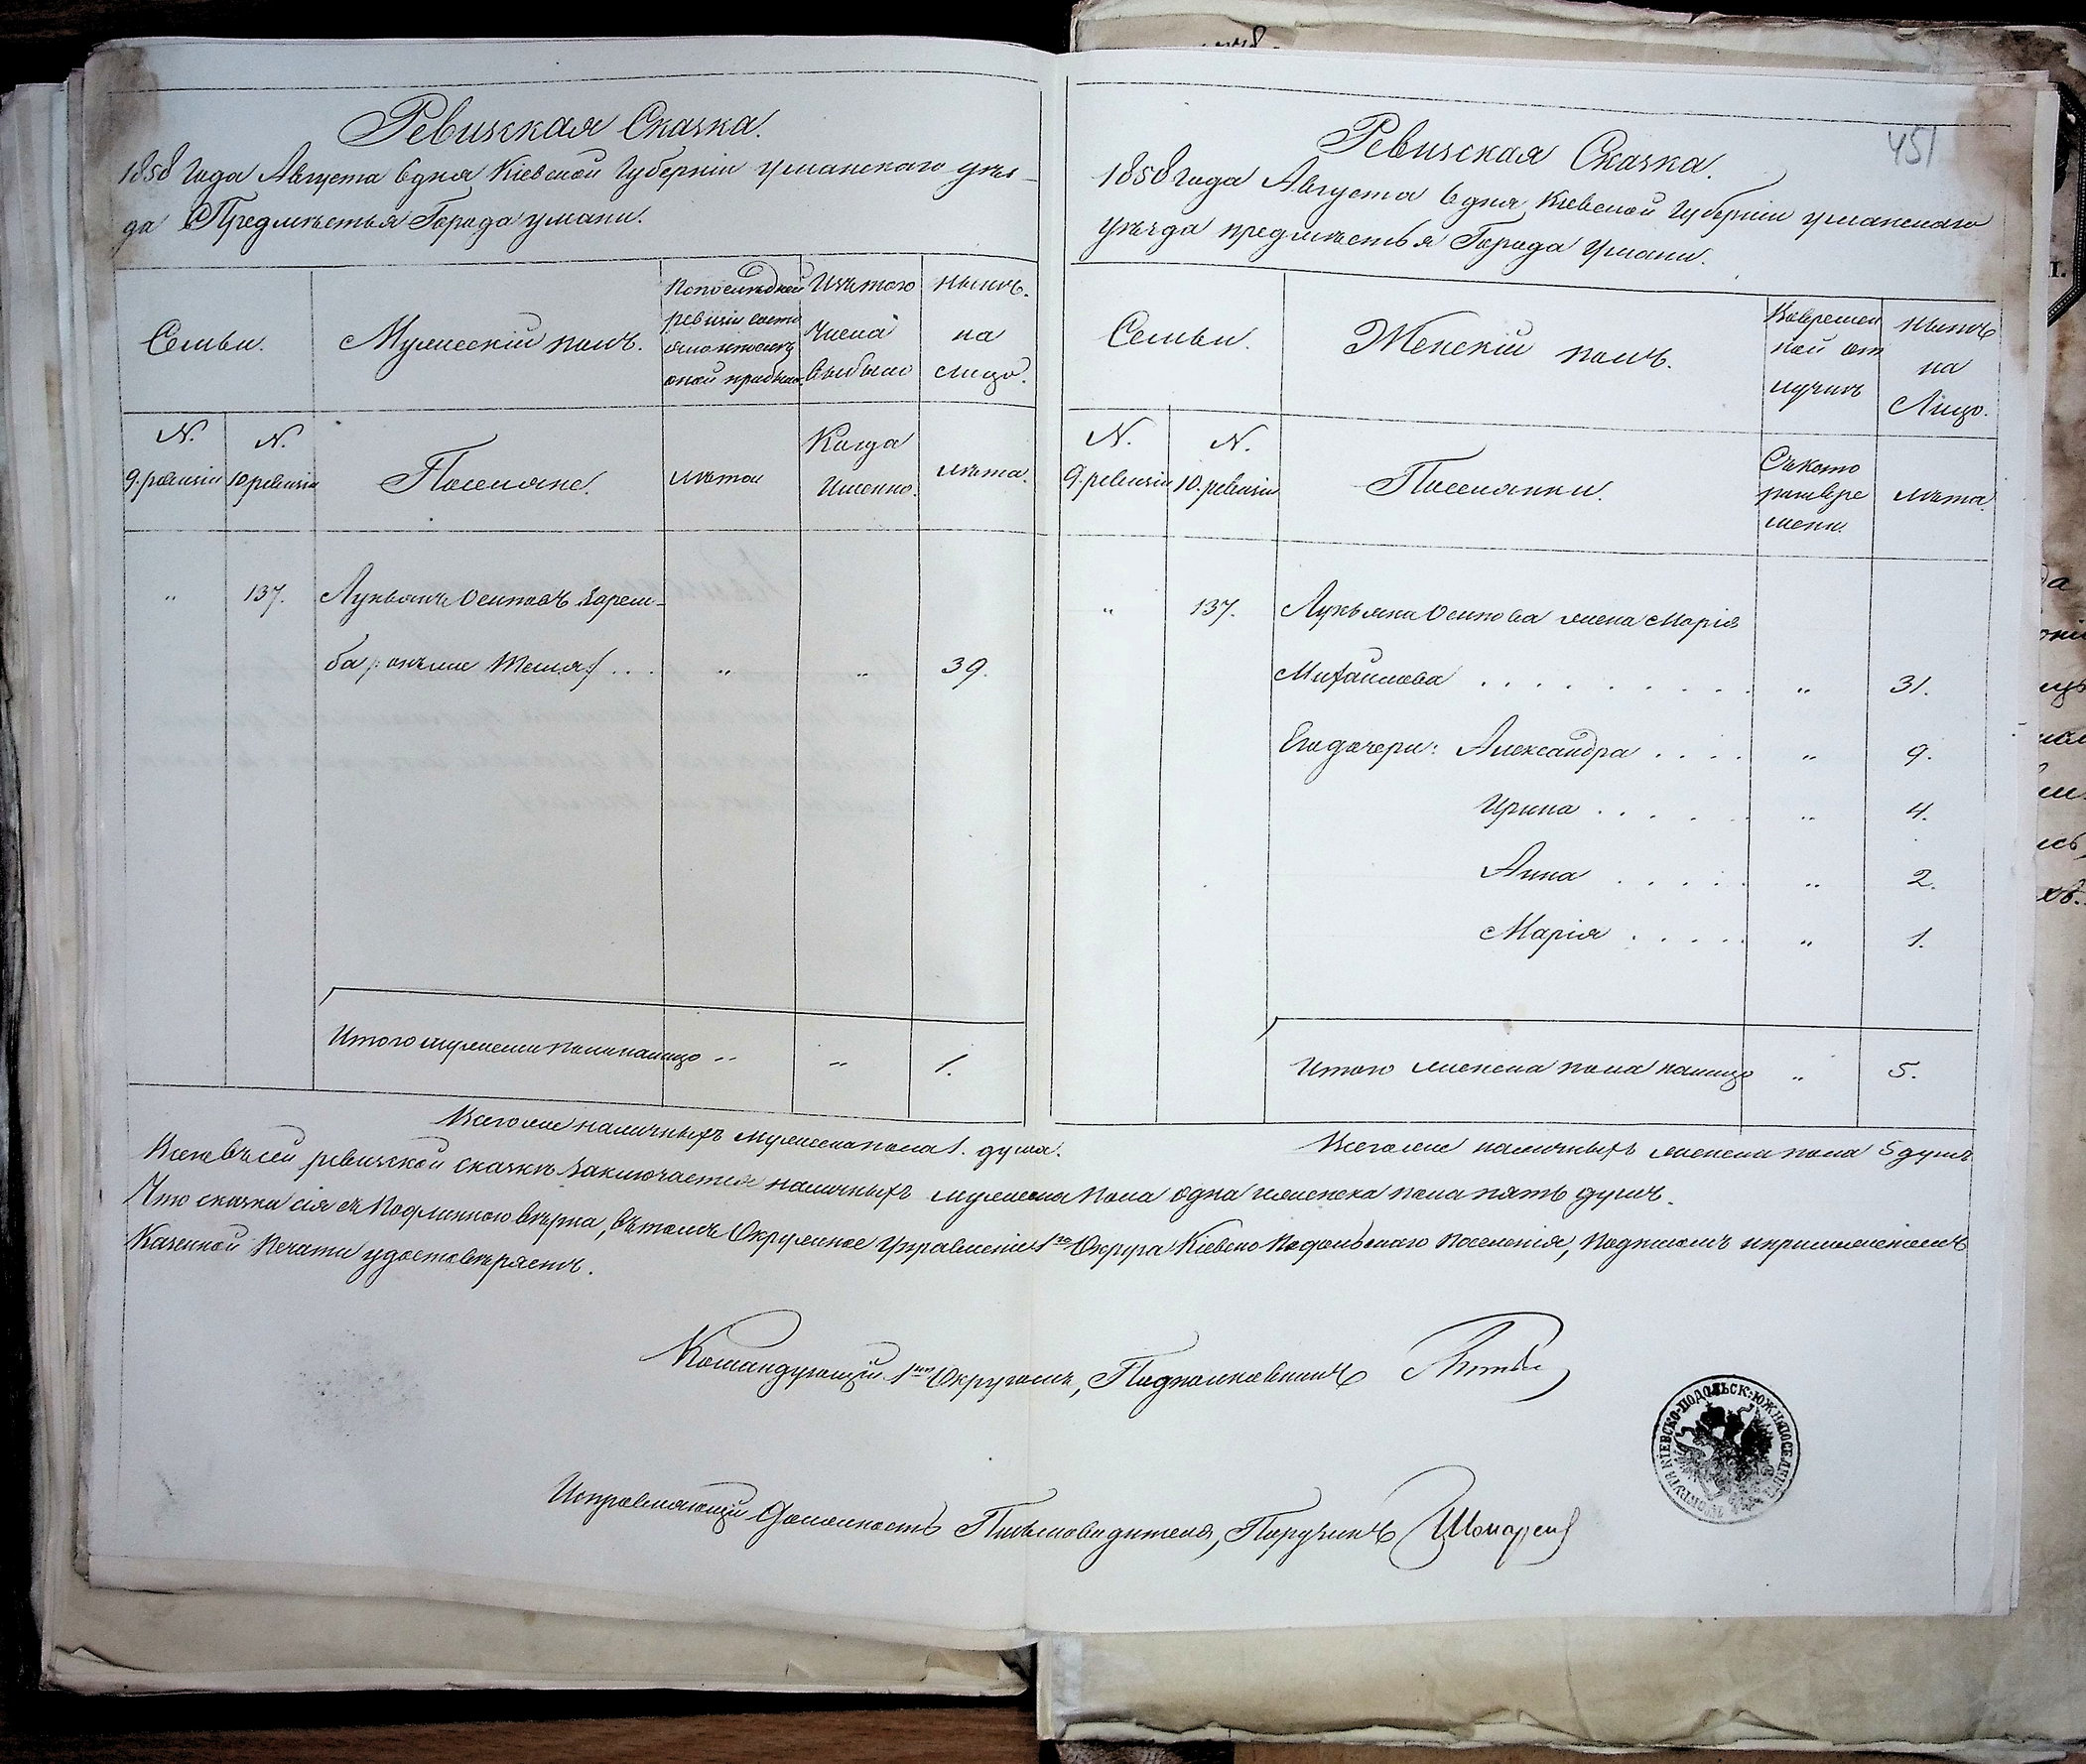 451
Ревизская Сказка.
1858 Года Августа 6 дня Кіевской Губерніи Уманскаго уѣз-
да Предмѣстья Города Умани.
Семьи.
Мужескій полъ.
По последней
ревизіи состо
яло и послѣ
оной прибыло
Изъ того
числа
выбыло
нынѣ.
на
лицо.
N.
9. ревизіи
N.
10 ревизіи
Поселяне.
лѣта
Когда
Именно.
лѣта.
„ 137. Лукьянъ Осиповъ Зарем-
ба /: онъ же Шемя :/ . . . „ „ 39.
Итого мужеска пола налицо „ „ 1.
Всего же наличныхъ мужеска пола 1. душа.
Ревизская Сказка.
1858 года Августа 6 дня Кіевской Губерніи Уманскаго
уѣзда предмѣстья Города Умани.
Семьи.
Женскій полъ.
Во времен
ной от
лучкѣ
нынѣ
на
Лицо.
N.
9. ревизіи
N.
10. ревизіи
Поселянки.
Съ кото
раго вре
мени.
лѣта.
„ 137. Лукьяна Осипова жена Марія
Михайлова . . . . . . . . . „ 31.
Его дочери: Александра . . . . „ 9.
Ирина . . . . . „ 4.
Анна . . . . . „ 2.
Марія . . . . . „ 1.
Итого женска пола налицо „ 5.
Всего же наличныхъ женска пола 5 душъ
Всего въ сей ревизской сказкѣ заключается наличныхъ мужеска пола одна и женска пола пять душъ.
Что сказка сія съ подлинною вѣрна, въ томъ Окружное Управленіе 1го Округа Кіевско Подольскаго Поселенія, подписомъ и приложеніемъ
Казенной Печати удостовѣряетъ.
Командующій 1мъ Округомъ, Подполковникъ
Исправляющій Должность Письмоводителя, Поручикъ
КІЕВСКО-ПОДОЛЬСК: ЮЖН: ПОСЕЛЕНІЯ